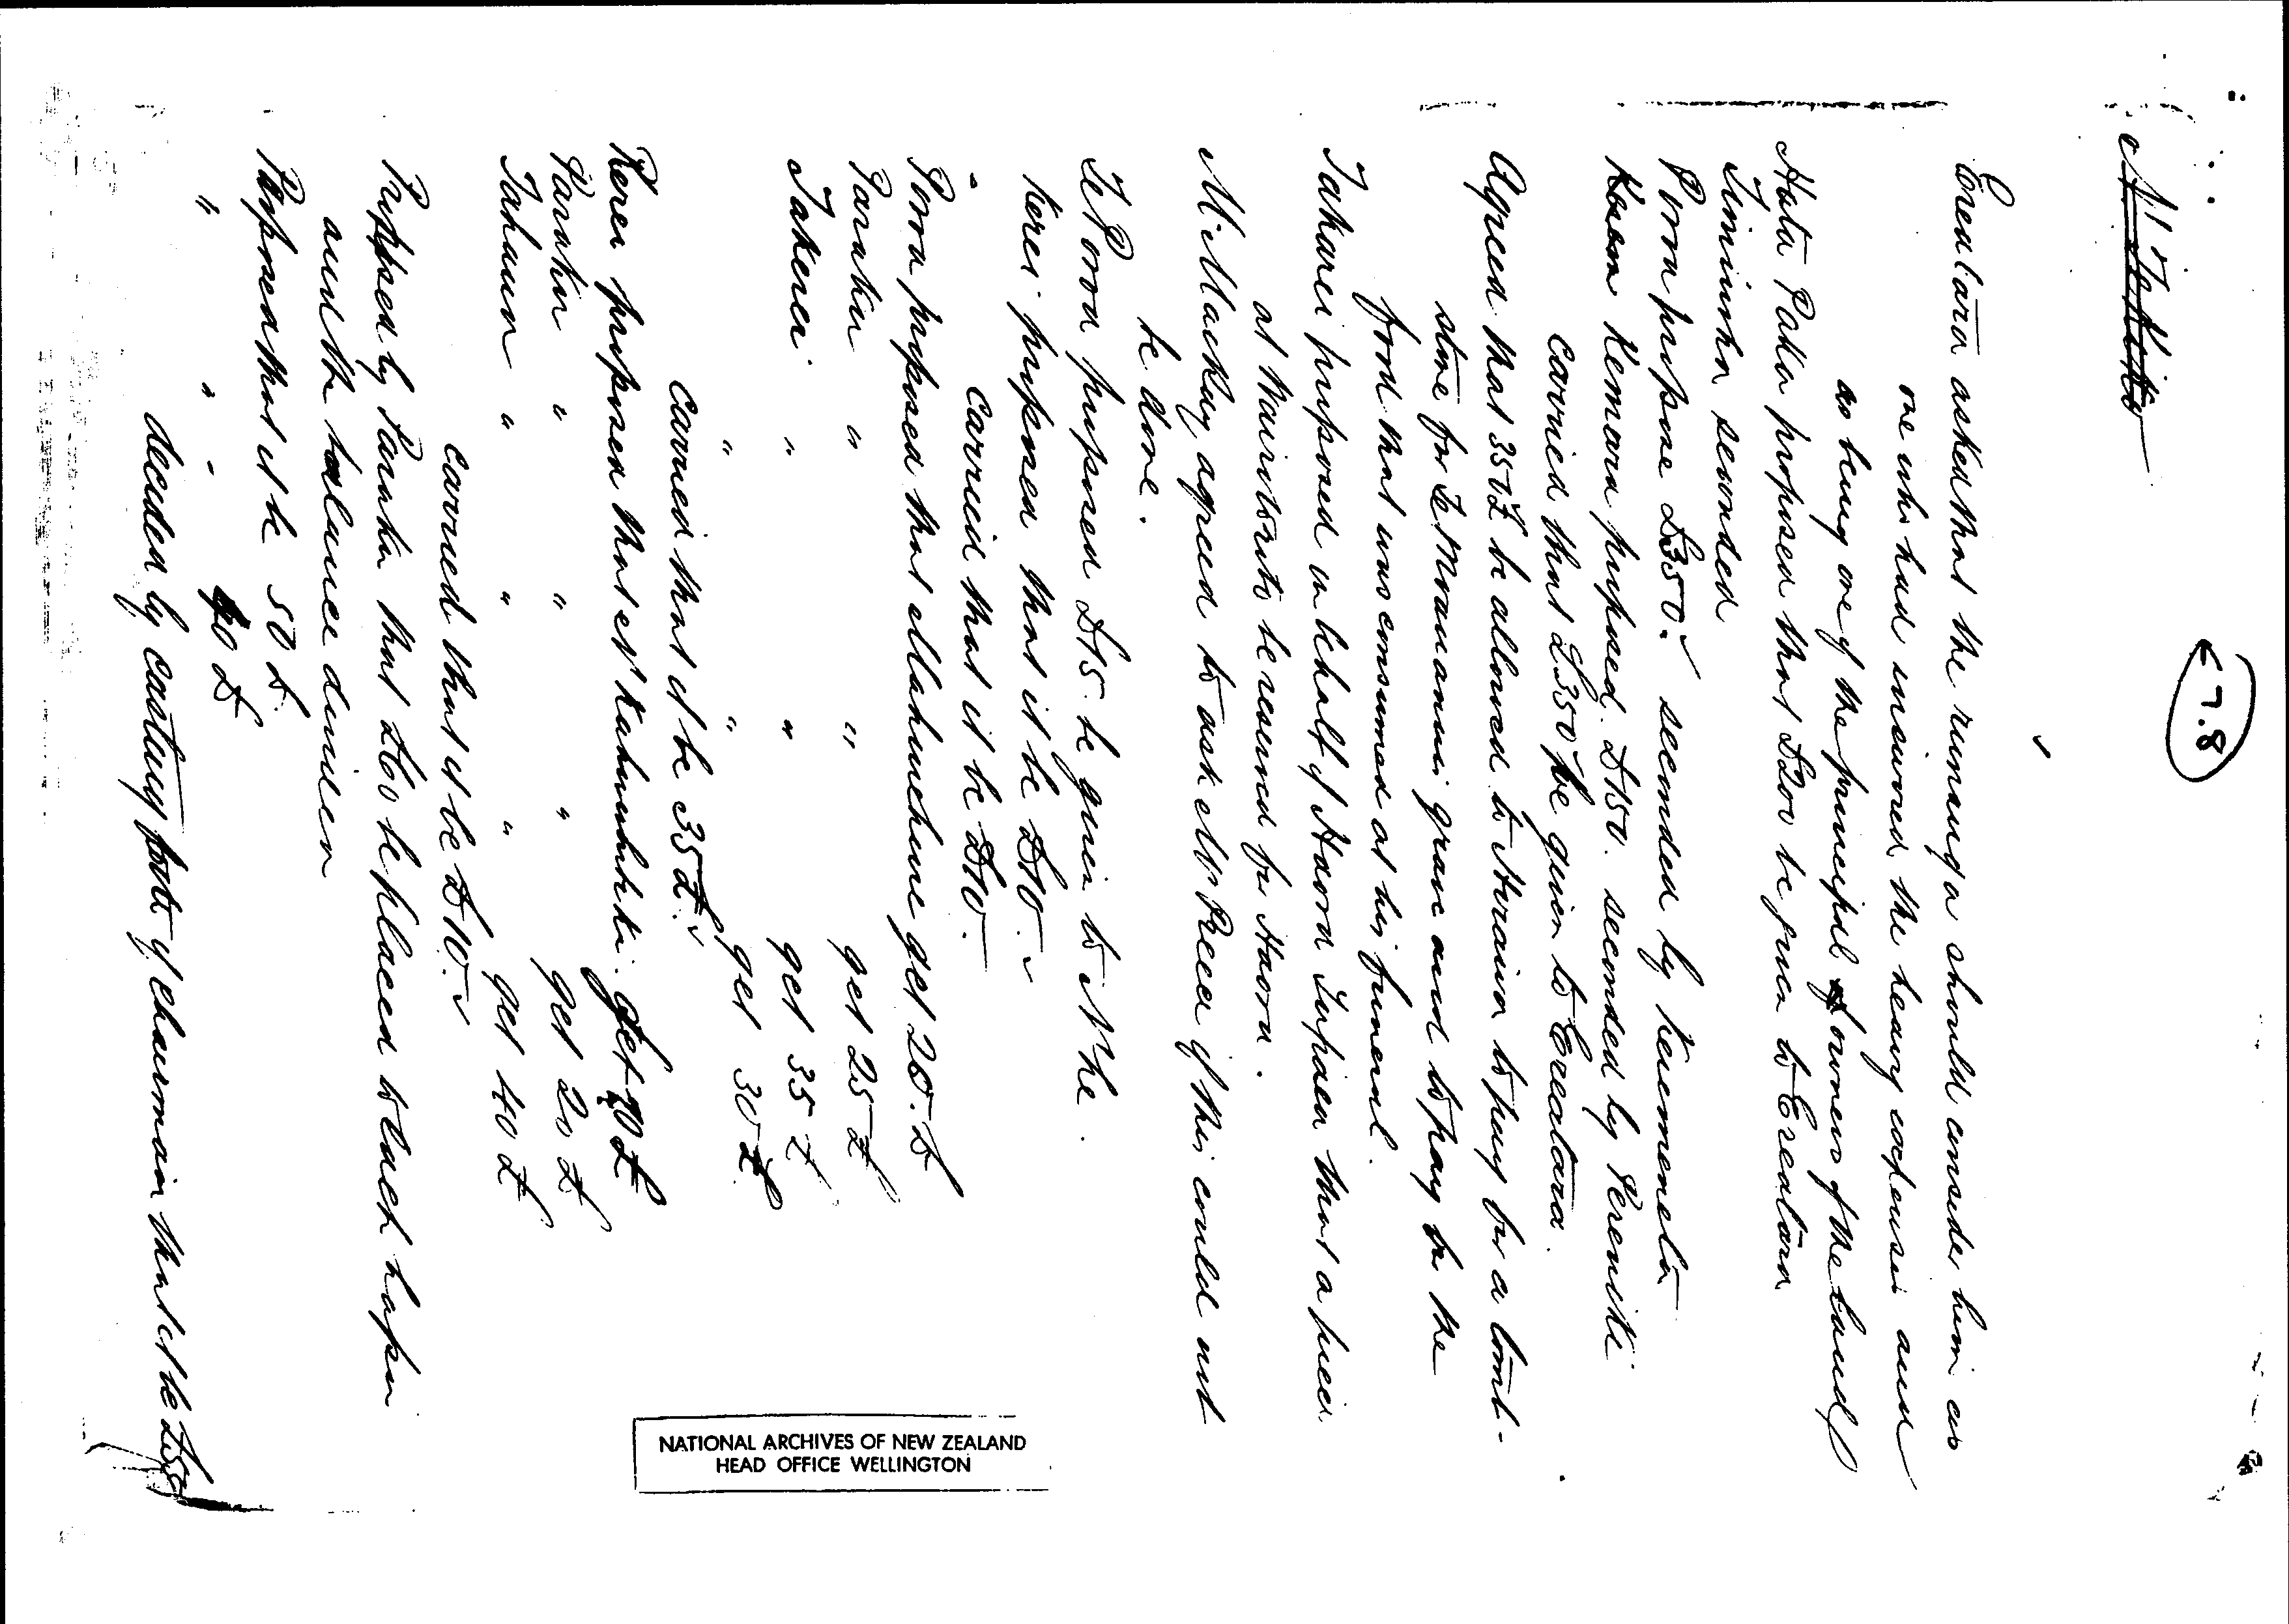 7.8
Erealara asked that the runanga should consider him as
one who had incurred the heavy expenses and
as being one of the principal owners of the land
Hata Paka proposed that £200 be given to Erealara
seconded
Porra propose £350. seconded by
Kemara proposed £150. seconded by
carried that £350 be given to Erealara.
Agreed that 350£ be allowed to to pay for a tomb-
stone for grave and to pay for the
food that was consumed at his funeral.
Takarei proposed on behalf of Haora Tupaea that a piece
at be reserved for Haora.
Mr Mackay agreed to ask Mr Preece if this could not
be done.
Te Porra proposed £15 be given to
Kerei proposed that it be £10.
carried that it be £10.
Porra proposed that get 20. £
Paraku " " get 25 £
Takerei " " get 35 £
" " get 30 £
carried that it be 35£.
Kerei proposed that get £
Paraku " " " get 20 £
" " " get 40 £
carried that it be £10.
Proposed by Paraku that £60 be placed to each hapu
and the balance divided
Proposed that it be 50 £.
" " " 40 £
decided by casting vote of chairman that it be £50
NATIONAL ARCHIVES OF NEW ZEALAND
HEAD OFFICE WELLINGTON